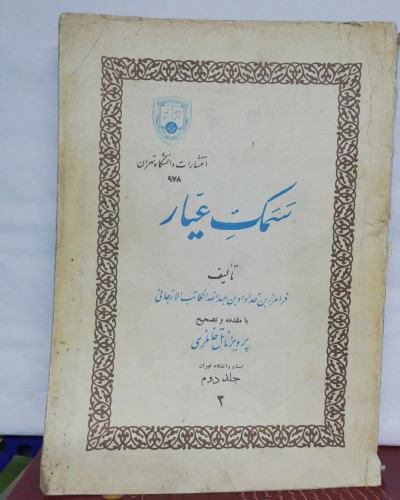 انتشارات دانشگاه تهران
۹۷۸
سَمَکِ عَیّار
تألیف
فرامرز بن خداداد بن عبدالله الکاتب الارجانی
با مقدمه و تصحیح
پرویز ناتل خانلری
استاد دانشگاه تهران
جلد دوم
۳